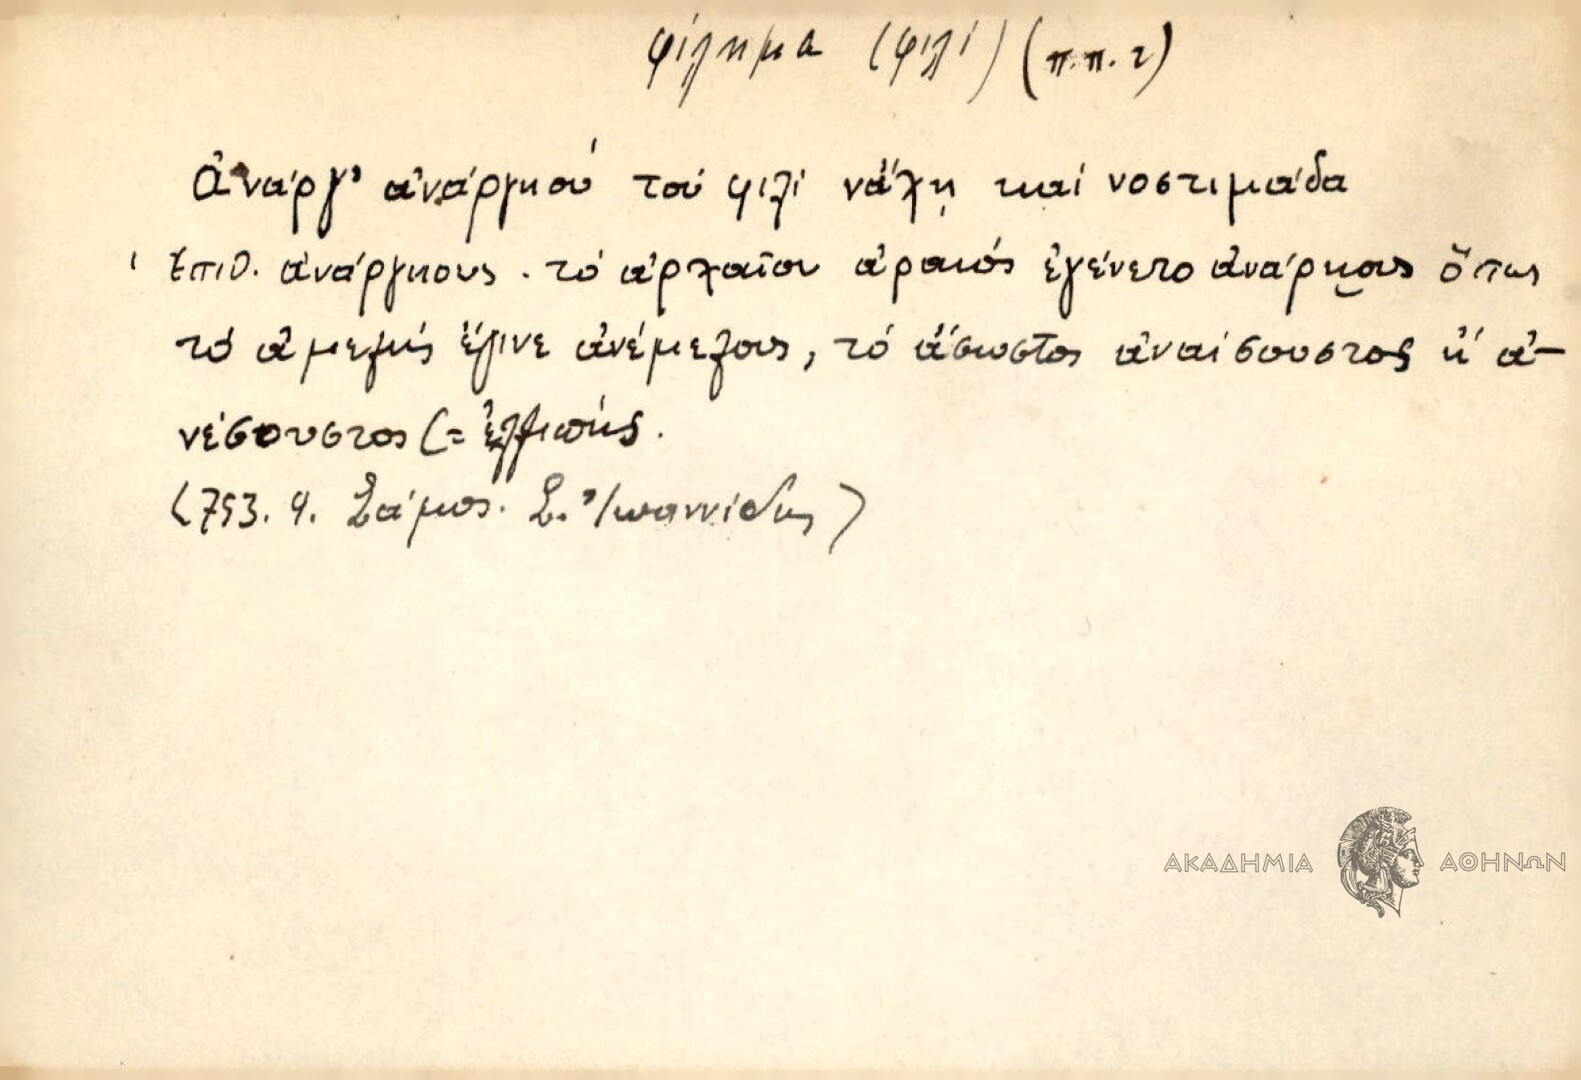 φίλημα (φιλί) (π.π. 2)
Ἀνάργ' ἀνάργκού τού φιλί νἄχῃ καί νοστιμάδα
Ἐπιθ. ἀνάργκους. τό ἀρχαῖον ἀραιός ἐγένετο ἀνάρκους ὅπως
τό ἀμελής ἔγινε ἀνέμελους, τό ἄσωστος ἀναίσουστος κ' ἀ-
νέσουστος (= ἐλλιπής.
(753. 4. Σάμος. Σ. Ἰωαννίδης)
ΑΚΑΔΗΜΙΑ ΑΘΗΝΩΝ